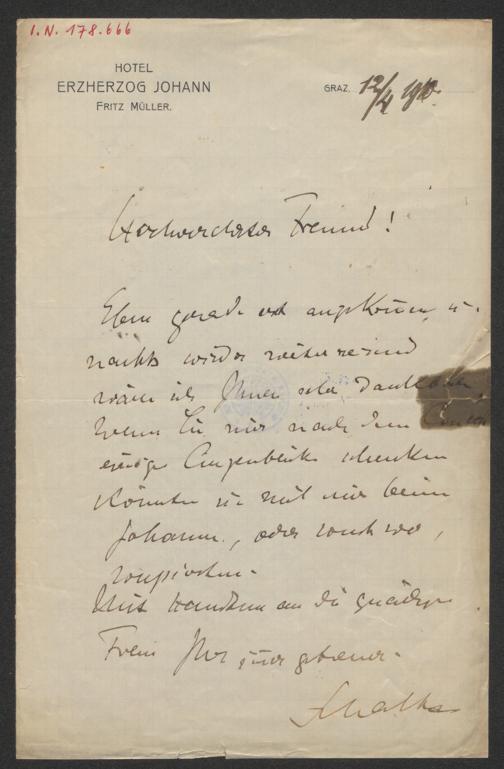 I.N. 178.666
HOTEL
ERZHERZOG JOHANN
FRITZ MÜLLER.
GRAZ, 12/4 1910.
Hochverehrter Freund!
Eben gerade erst angekommen u.
nachts wieder weiterreisend
wäre ich Ihnen sehr dankbar
wenn Sie mir nach dem
einige Augenblicke schenken
könnten u mit mir beim
Johann, oder sonst wo,
soupirten.
Mit Handkuss an die gnädige
Frau Ihr getreuer
Schalk